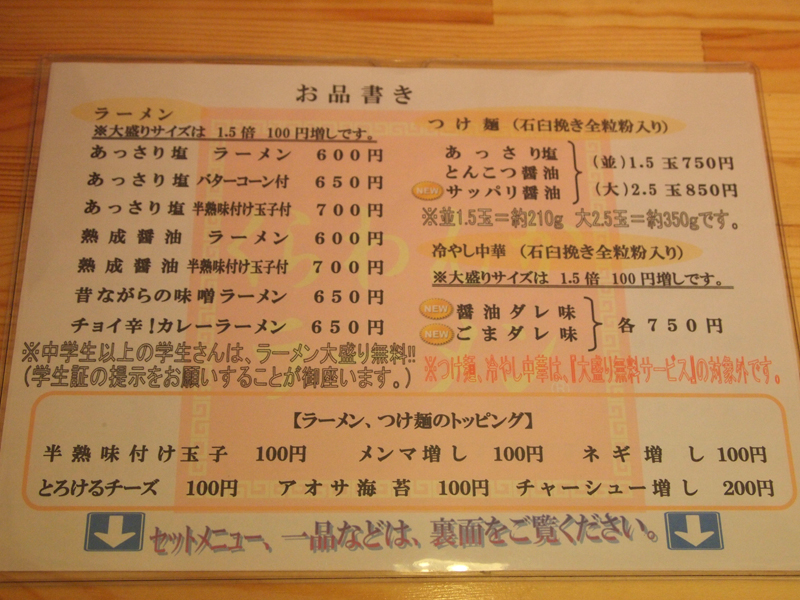 お品書き
ラーメン
※大盛りサイズは 1.5倍 100円増しです。
あっさり塩 ラーメン 600円
あっさり塩 バターコーン付 650円
あっさり塩 半熟味付け玉子付 700円
熟成醤油 ラーメン 600円
熟成醤油 半熟味付け玉子付 700円
昔ながらの味噌ラーメン 650円
チョイ辛!カレーラーメン 650円
※中学生以上の学生さんは、ラーメン大盛り無料!!
(学生証の提示をお願いすることが御座います。)
つけ麺 (石臼挽き全粒粉入り)
あっさり塩
とんこつ醤油
NEW サッパリ醤油
(並)1.5玉750円
(大)2.5玉850円
※並1.5玉=約210g 大2.5玉=約350gです。
冷やし中華 (石臼挽き全粒粉入り)
※大盛りサイズは 1.5倍 100円増しです。
NEW 醤油ダレ味
NEW ごまダレ味
各750円
※つけ麺、冷やし中華は、『大盛り無料サービス』の対象外です。
【ラーメン、つけ麺のトッピング】
半熟味付け玉子 100円 メンマ増し 100円 ネギ増し 100円
とろけるチーズ 100円 アオサ海苔 100円 チャーシュー増し 200円
セットメニュー、一品などは、裏面をご覧ください。